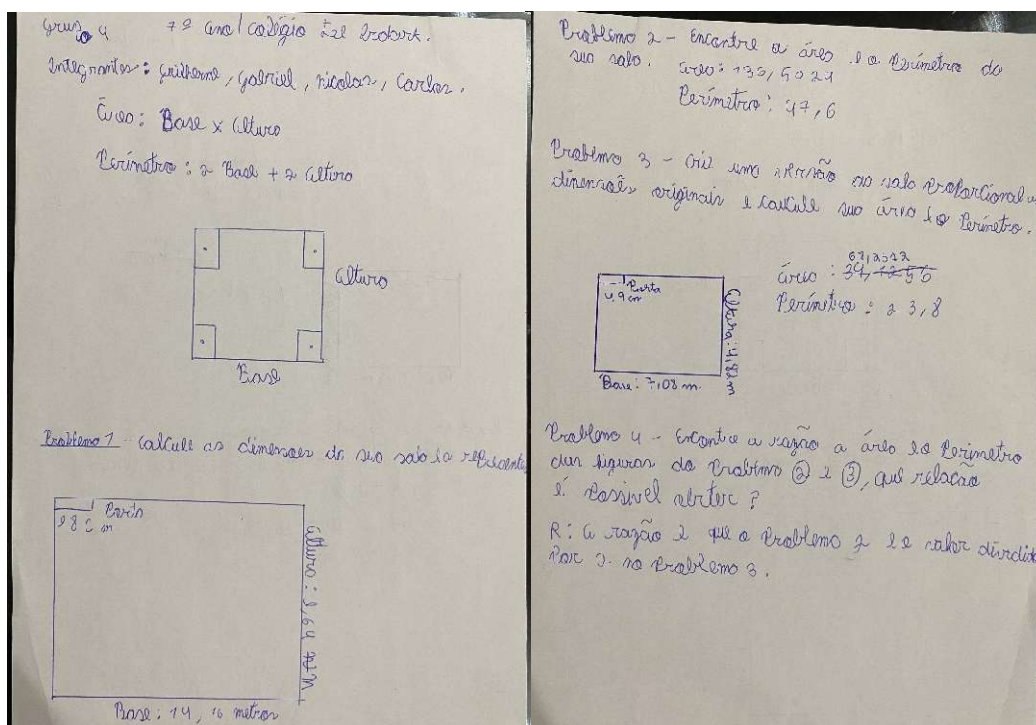 Grupo 4 7º ano / colégio
Integrantes: Guilherme, Gabriel, Nicolas, Carlos.
Área: Base x Altura
Perímetro: 2 Base + 2 Altura
Altura
Base
Problema 1 - Calcule as dimensões da sua sala e a represente
Porta
98 cm
Altura: 9,64 m
Base: 14,16 metros
Problema 2 - Encontre a área e o Perímetro da
sua sala. Área: 5024
Perímetro: 47,6
Problema 3 - Crie uma versão da sala Proporcional a
dimensões originais e calcule sua área e o Perímetro.
Porta
4,9 cm
Altura: 4,82 m
Base: 7,08 m.
Área: 39,4256
Perímetro: 23,8
Problema 4 - Encontre a razão a área e o Perímetro
das figuras do Problema 2 e 3, que relação
é Possível obter?
R: A razão é que o Problema 2 é o valor dividido
Por 2 no Problema 3.